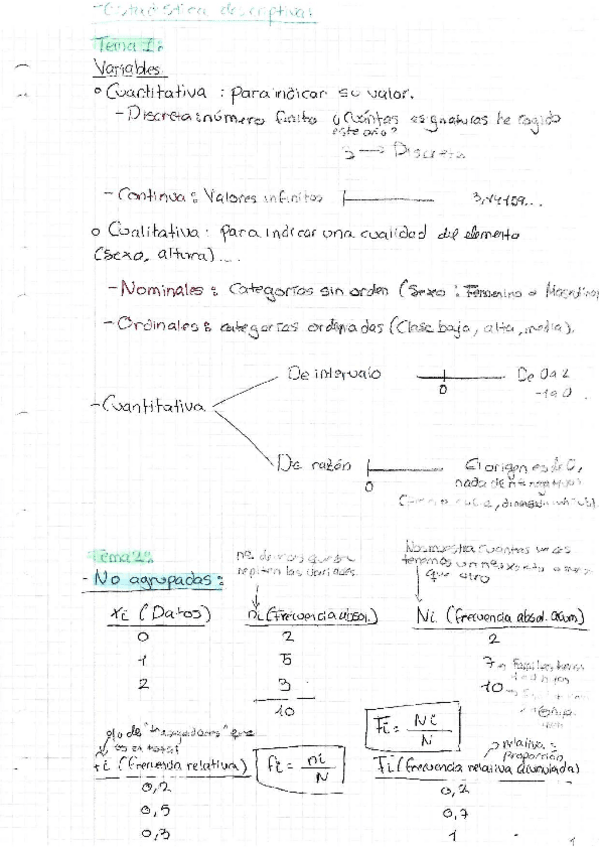 - Estadística descriptiva:
Tema 1:
Variables
o Cuantitativa : para indicar su valor.
- Discreta: número finito ¿Cuántas asignaturas he cogido
este año?
3 → Discreta
- Continua: Valores infinitos
3,14159...
o Cualitativa: para indicar una cualidad del elemento
(sexo, altura)....
- Nominales: Categorías sin orden (Sexo: Femenino o Masculino)
- Ordinales: categorías ordenadas (Clase baja, alta, media).
- Cuantitativa
De intervalo
0
De 0 a 2
-1 a 0
De razón
0
El origen es de 0,
nada de nº negativos
Tema 2:
- No agrupadas:
repiten las variables
Nos muestra cuantas veces
tenemos un
que otro
Xi (Datos) ni (frecuencia absol.) Ni (frecuencia absol. acum)
0 2 2
1 5 7
2 3 10
10
Fi = Ni / N
fi (frecuencia relativa) fi = ni / N Fi (frecuencia relativa acumulada)
relativa =
proporción
0,2 0,2
0,5 0,7
0,3 1